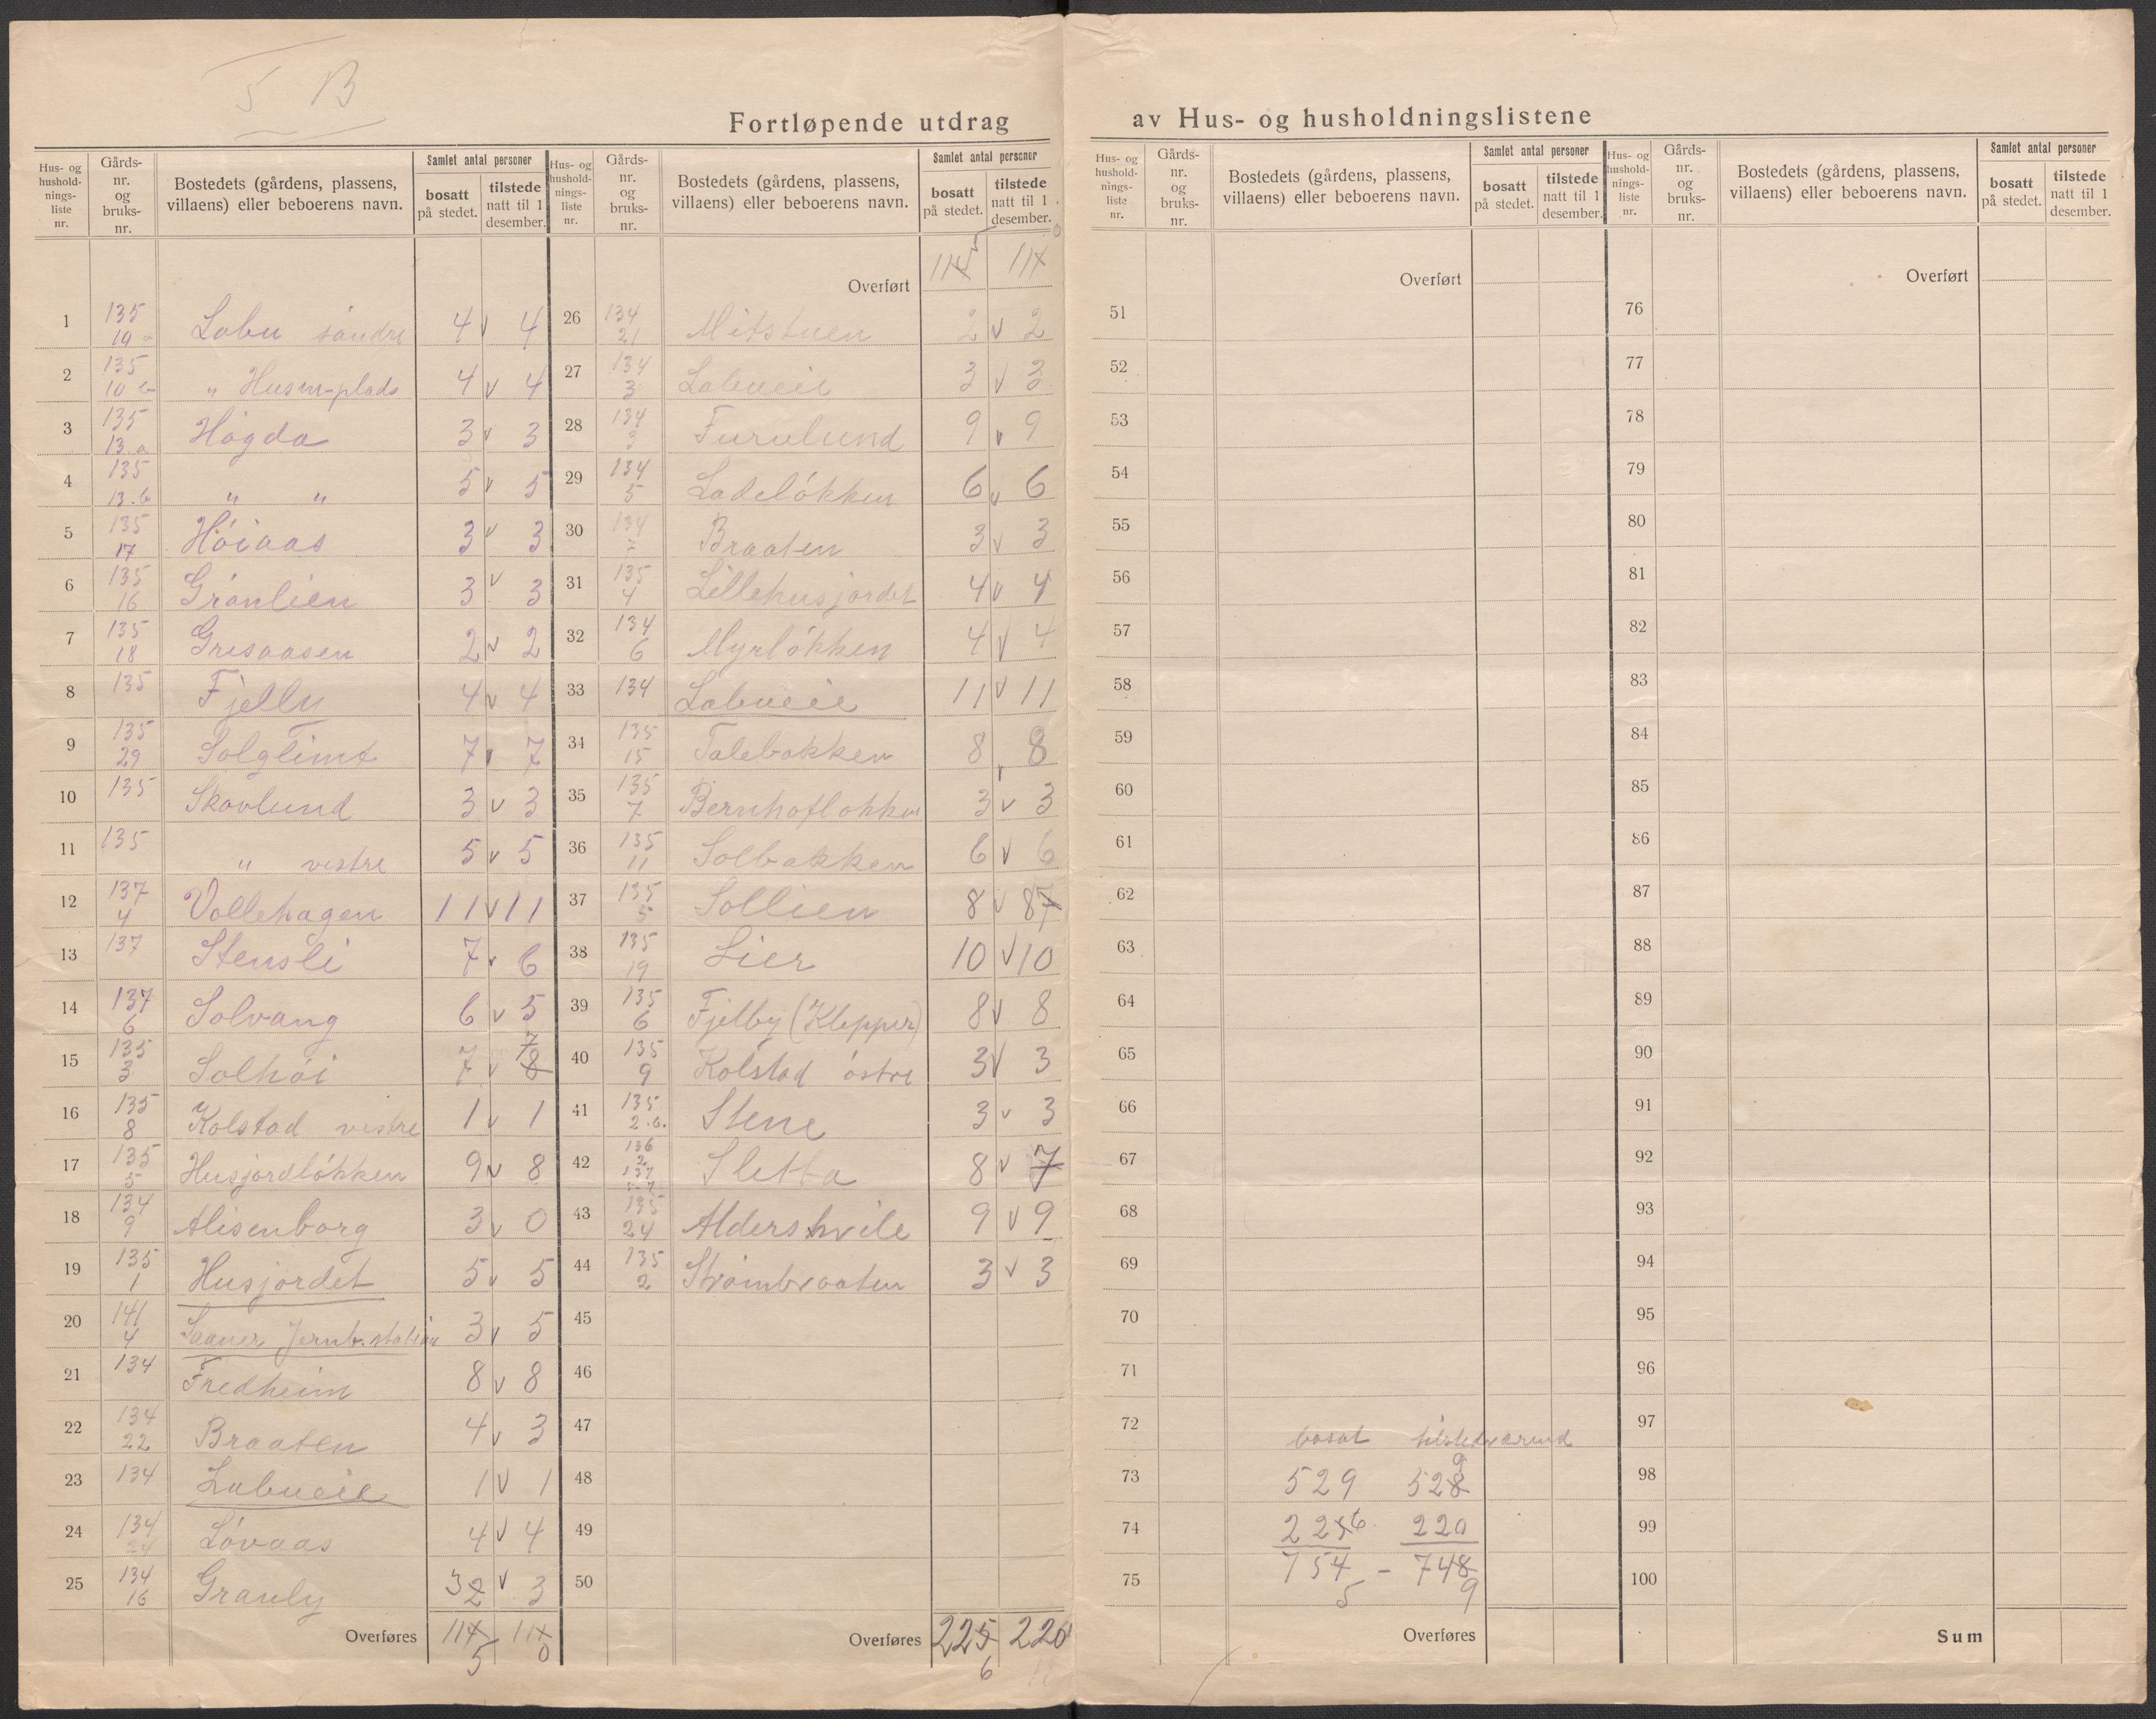 5 B
Fortløpende utdrag av Hus- og husholdningslistene
Hus- og husholdningsliste nr. | Gårds-nr. og bruks-nr. | Bostedets (gårdens, plassens, villaens) eller beboerens navn. | Samlet antal personer bosatt på stedet. | tilstede natt til 1 desember.
1 135 10 a Labu søndre 4 v 4
2 135 10 b " Husm-plads 4 v 4
3 135 13 a Høgda 3 v 3
4 135 13.b " " 5 v 5
5 135 17 Høiaas 3 v 3
6 135 16 Grønlien 3 v 3
7 135 18 Grisaasen 2 v 2
8 135 Fjelly 4 v 4
9 135 29 Solglimt 7 v 7
10 135 Skovlund 3 v 3
11 135 " vestre 5 v 5
12 137 4 Vollehagen 11 v 11
13 137 Stensli 7 v 6
14 137 6 Solvang 6 v 5
15 135 3 Solhøi 7 v 8 7
16 135 8 Kolstad vestre 1 v 1
17 135 5 Husjordløkken 9 v 8
18 134 9 Alisenborg 3 v 0
19 135 1 Husjordet 5 v 5
20 141 4 Saaner Jernb.station 3 v 5
21 134 Fredheim 8 v 8
22 134 22 Braaten 4 v 3
23 134 Labueie 1 v 1
24 134 24 Løvaas 4 v 4
25 134 16 Granly 3 2 v 3
Overføres 114 5 11 0
Hus- og husholdningsliste nr. | Gårds-nr. og bruks-nr. | Bostedets (gårdens, plassens, villaens) eller beboerens navn. | Samlet antal personer bosatt på stedet. | tilstede natt til 1 desember.
Overført 114 5 11 0
26 134 21 Mitstuen 2 v 2
27 134 3 Labueie 3 v 3
28 134 3 Furulund 9 v 9
29 134 5 Ladeløkken 6 v 6
30 134 7 Braaten 3 v 3
31 135 4 Lillehusjordet 4 v 4
32 134 6 Myrløkken 4 v 4
33 134 Labueie 11 v 11
34 135 15 Talebakken 8 v 8
35 135 7 Bernhofløkken 3 v 3
36 135 11 Solbakken 6 v 6
37 135 5 Sollien 8 v 8 7
38 135 19 Lier 10 v 10
39 135 6 Fjelby (Klepper) 8 v 8
40 135 9 Kolstad østre 3 v 3
41 135 2.b. Stene 3 v 3
42 136 2 137 Sletta 8 v 7
43 135 24 Aldershvile 9 v 9
44 135 2 Strømbraaten 3 v 3
45
46
47
48
49
50
Overføres 225 6 220
Hus- og husholdningsliste nr. | Gårds-nr. og bruks-nr. | Bostedets (gårdens, plassens, villaens) eller beboerens navn. | Samlet antal personer bosatt på stedet. | tilstede natt til 1 desember.
Overført
51
52
53
54
55
56
57
58
59
60
61
62
63
64
65
66
67
68
69
70
71
72 bosat tilstedværend
73 529 528 9
74 225 6 220
75 754 5 - 748 9
Overføres
Hus- og husholdningsliste nr. | Gårds-nr. og bruks-nr. | Bostedets (gårdens, plassens, villaens) eller beboerens navn. | Samlet antal personer bosatt på stedet. | tilstede natt til 1 desember.
Overført
76
77
78
79
80
81
82
83
84
85
86
87
88
89
90
91
92
93
94
95
96
97
98
99
100
Sum